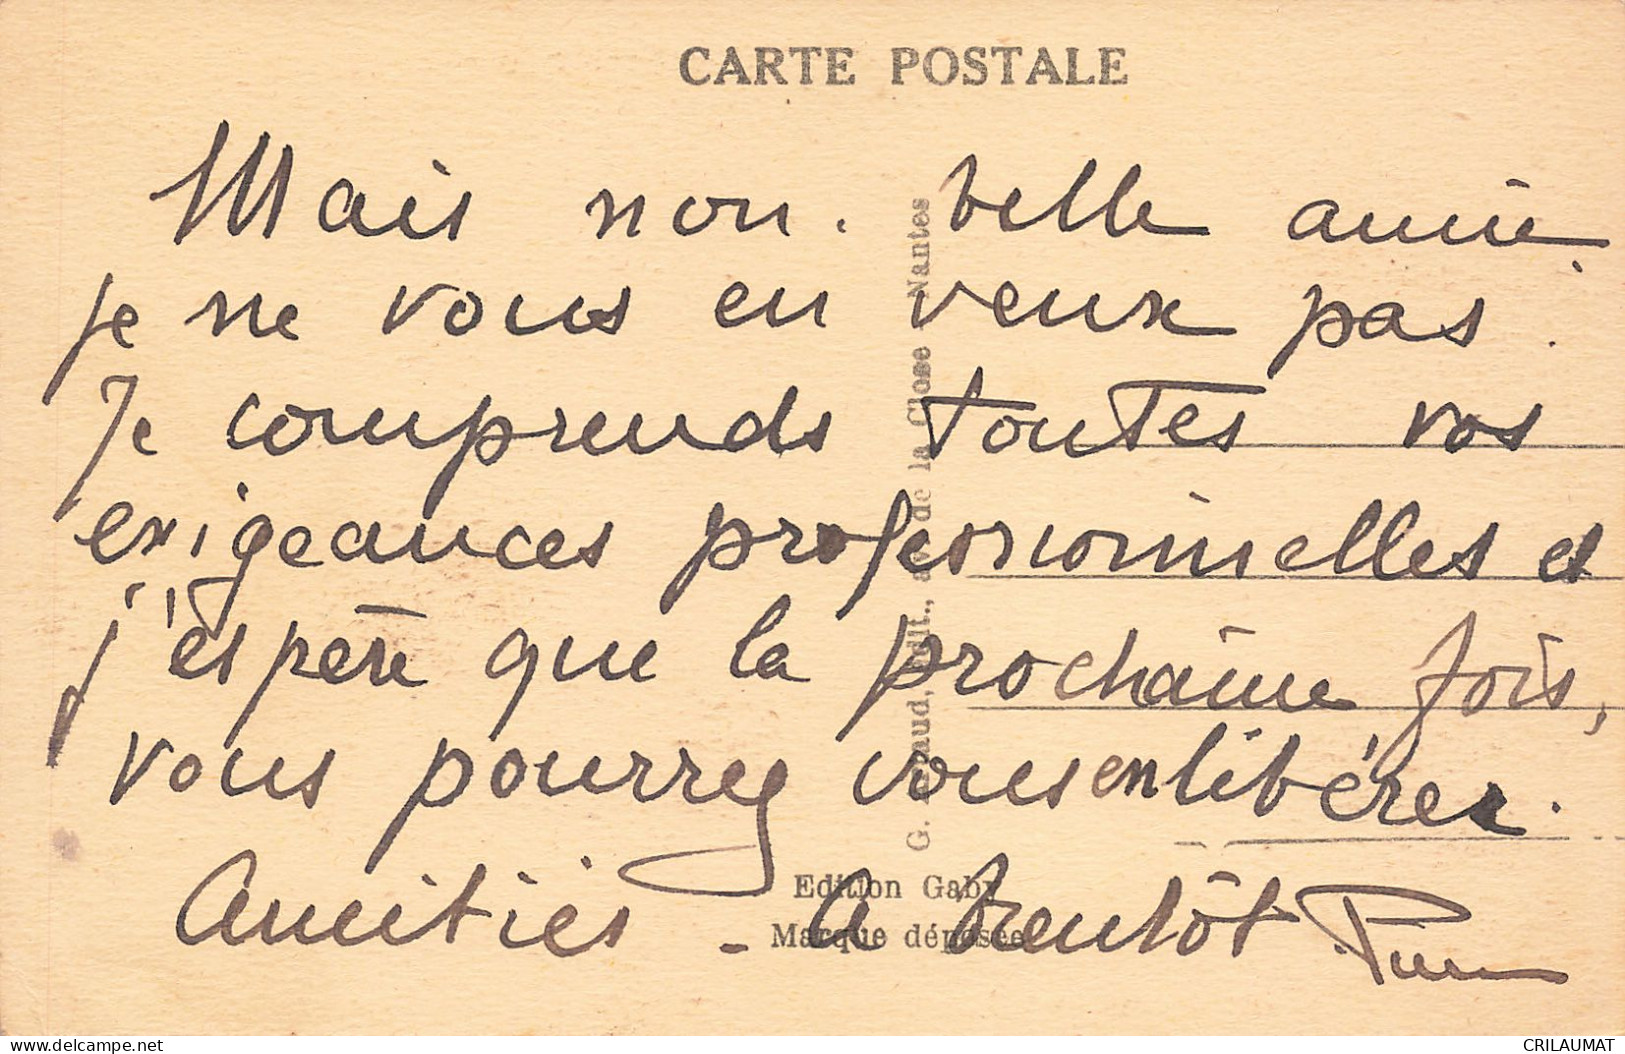 CARTE POSTALE
Mais non. belle amie
je ne vous en veux pas.
Je comprends toutes vos
exigeances professionnelles et
j'espère que la prochaine fois,
vous pourrez vous en libérer.
Amitiés - A bientôt Pierre
G. Artaud, Edit., av. de la Close Nantes
Edition Gaby
Marque déposée
delcampe.net
CRILAUMAT